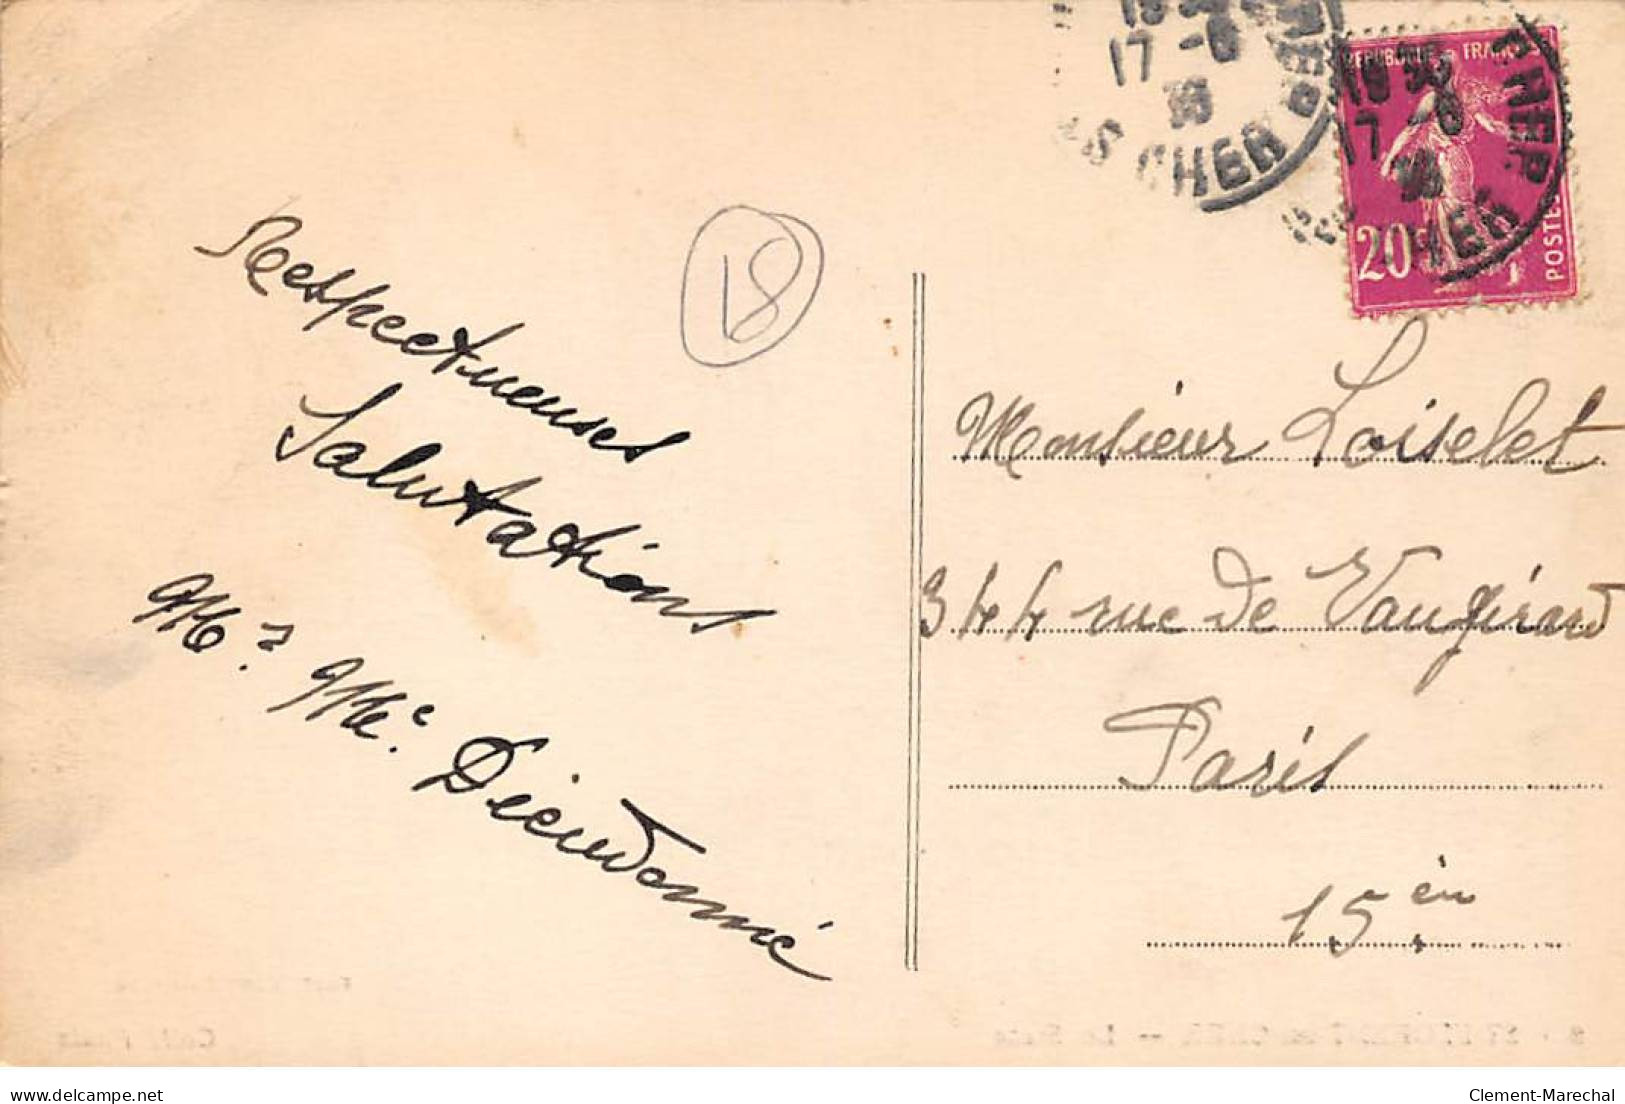 Respectueuses
Salutations
Mr. Me. Dieudonné
18
17 -6
38
CHER
REPUBLIQUE FRANC
20c
POSTES
Monsieur Loiselet
344 rue de Vaugirard
Paris
15.èm
delcampe.net
Clement-Marechal